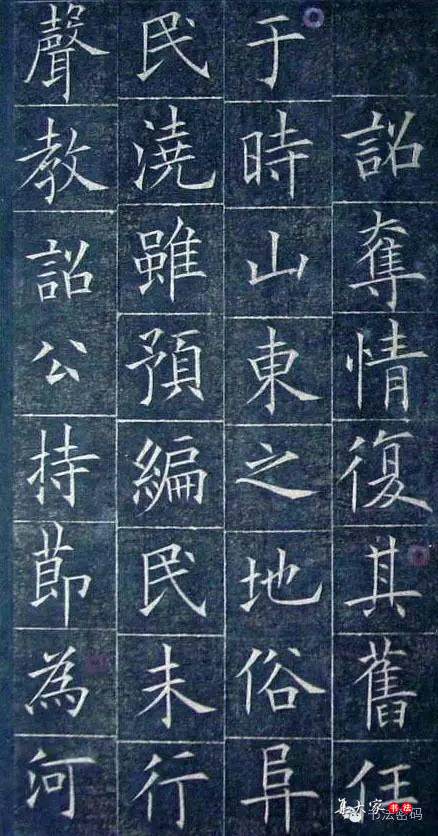 詔奪情復其舊任
于時山東之地俗阜
民澆雖預編民未行
聲教詔公持節為河
集大家书法
书法密码